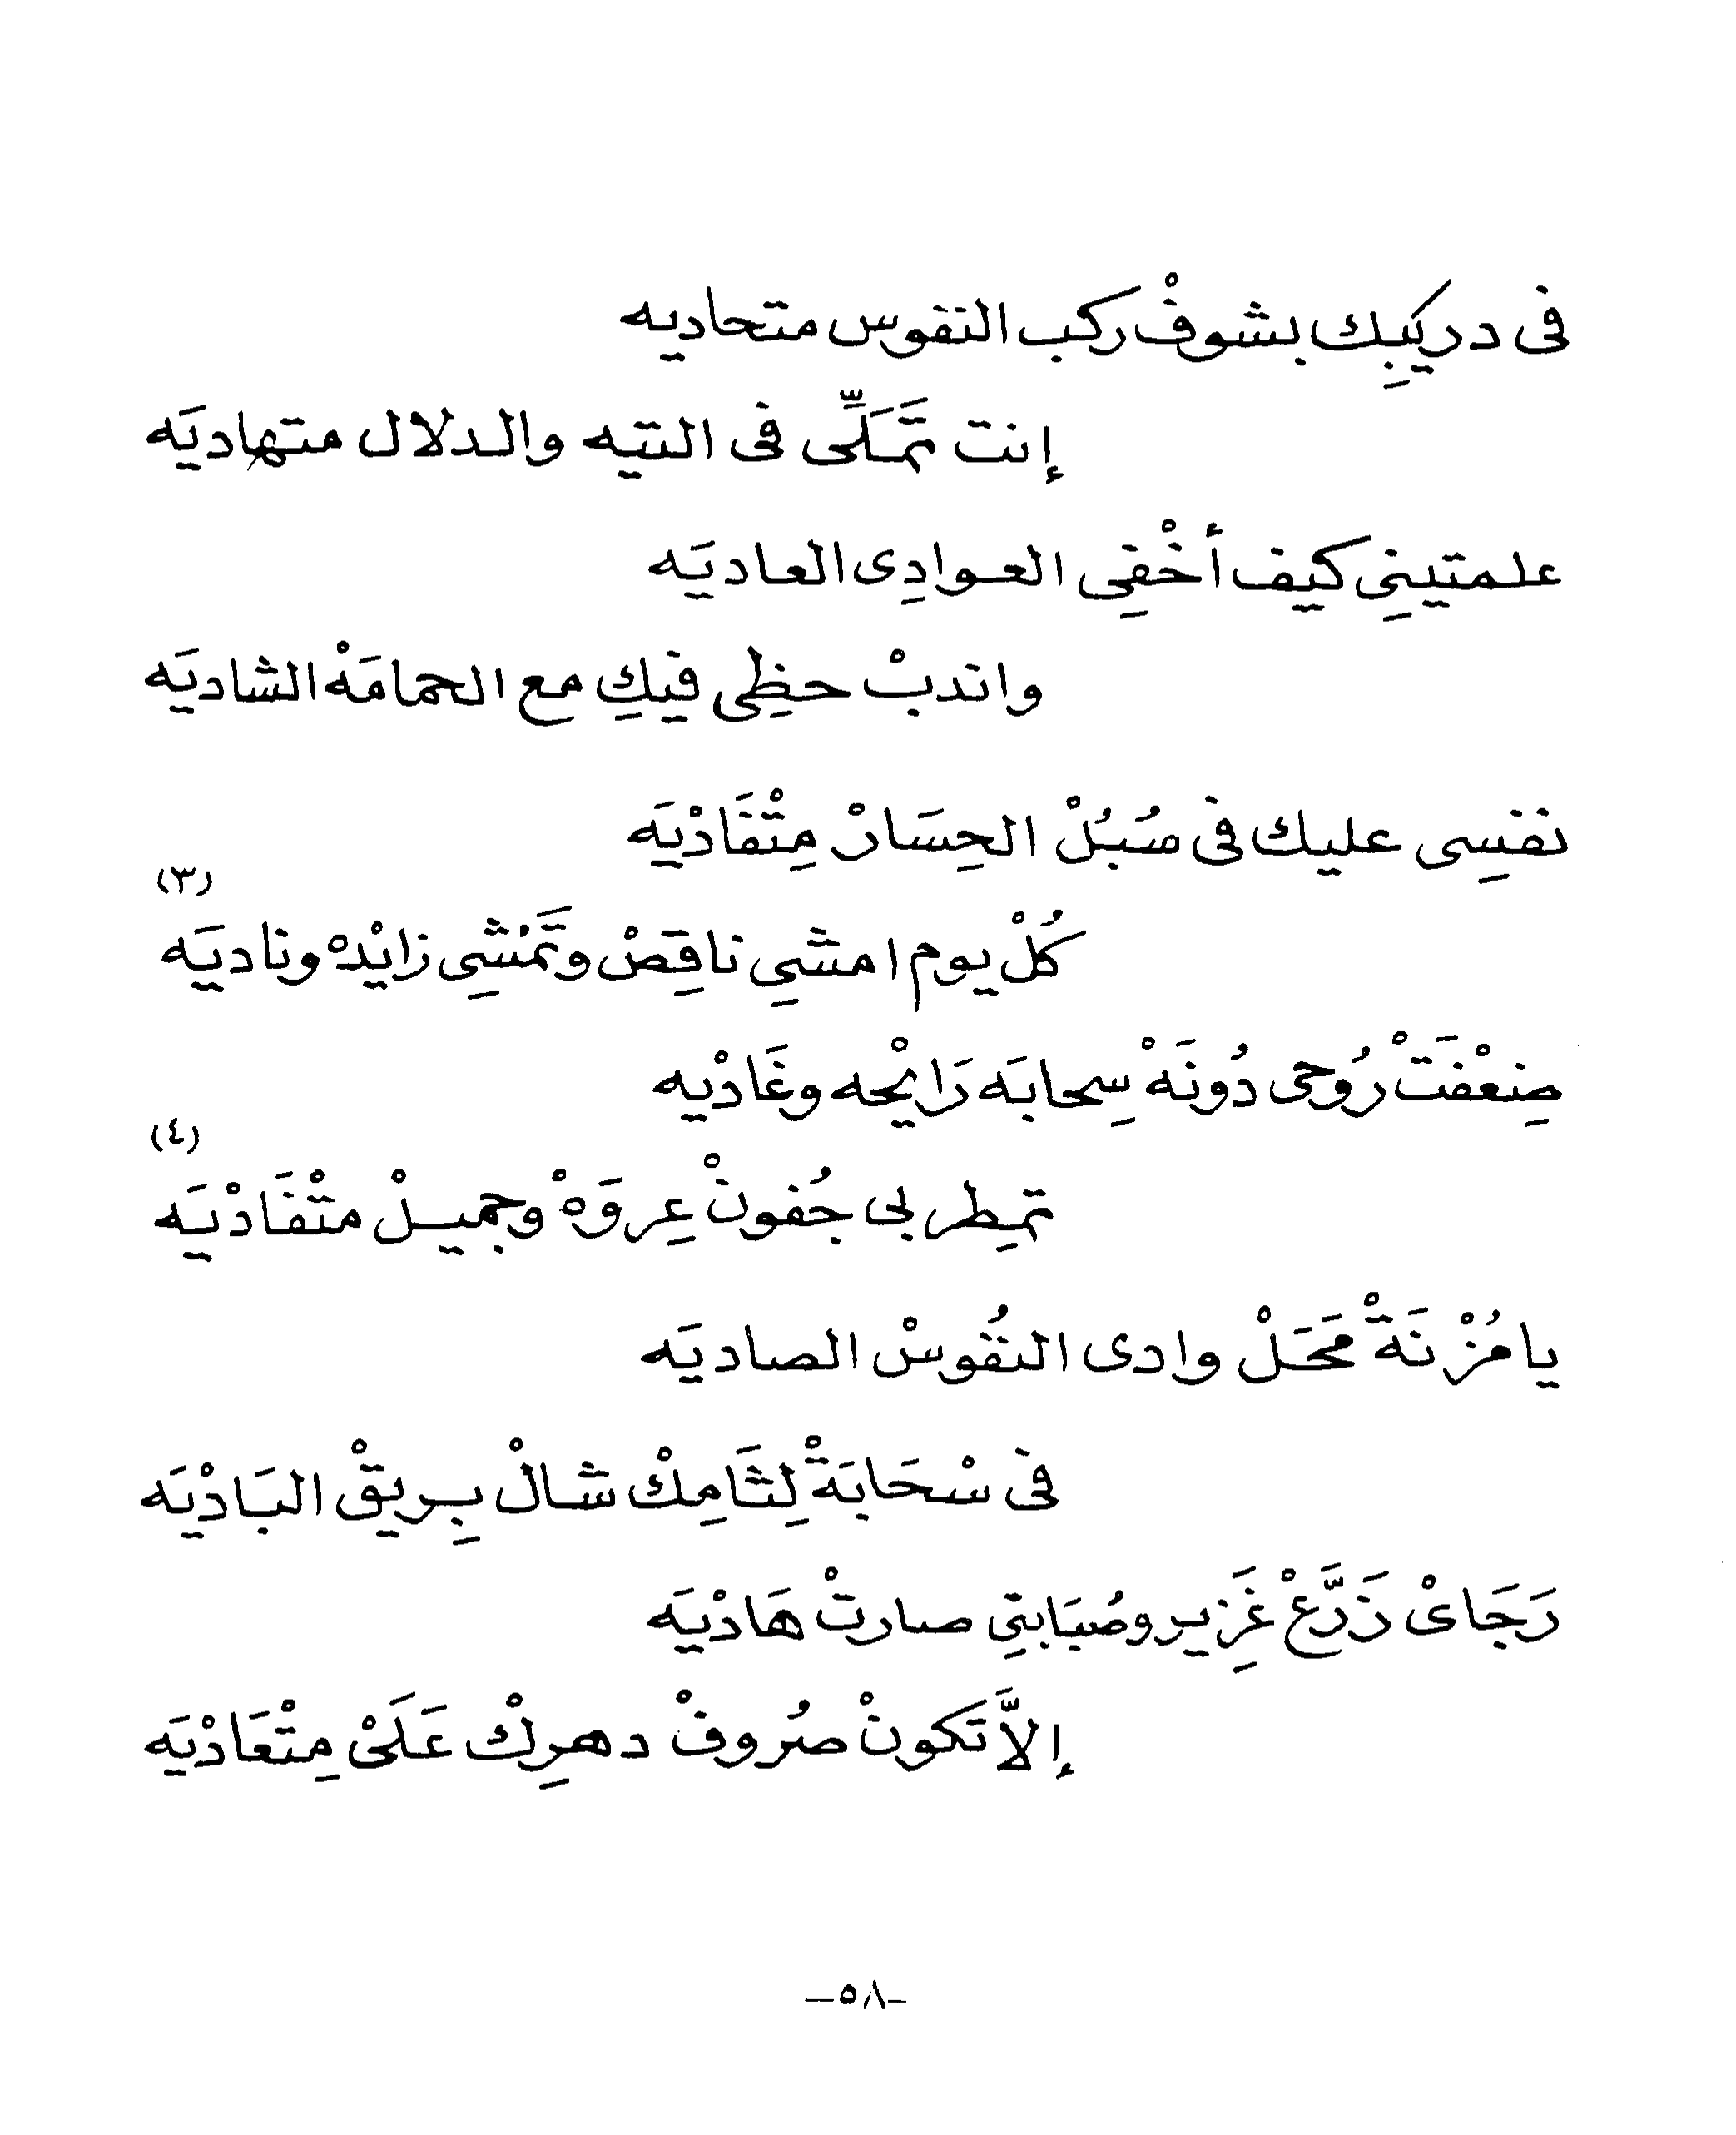 فى دريبِك بشوفْ ركب النفوس متحاديه
إنت تَمَلِّى فى التيه والدلال متهاديَه
علمتينِي كيف أخْفِي العوادِى العاديَه
واندبْ حظِى فيكِ مع الحمامَهْ الشاديَه
نفسِى عليك فى سُبُلْ الحِسَارْ مِتْفَادْيَه
(٣)
كُلْ يوم امشي ناقِصْ وتَمْشِى زايْدهْ وناديَه
ضِعْفَتْ رُوحى دُونَهْ سِحابَه رَايْحه وغَادْيه
(٤)
تمطِر بى جُفونْ عِروَهْ وجميلْ متْفَادْيَه
يا مُزْنَةْ مَحَلْ وادى النفُوسْ الصاديَه
فى سْحَابَةْ لِثَامِكْ شالْ بِريقْ البَادْيَه
رَجَاىْ زَرَّعْ غَزِير وصُبَابتِي صارتْ هَادْيَه
إلاَّ تَكونْ صُروفْ دهرِكْ عَلَىْ مِتْعَادْيَه
-٥٨-